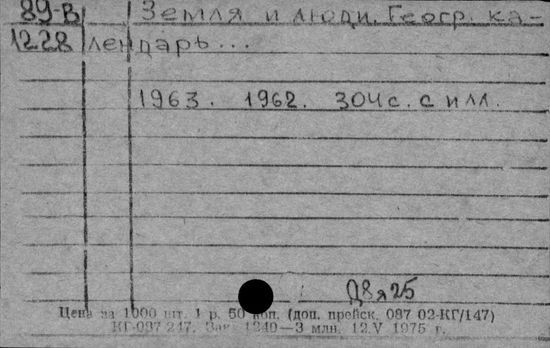 89-В Земля и люди. Геогр. ка-
1228 лендарь...
1963. 1962. 304 с. с илл.
Д8я25
Цена за 1000 шт. 1 р. 50 коп. (доп. прейск. 097 02-КГ/147)
КГ-097 247. Зак. 1240—3 млн. 12.V 1975 г.